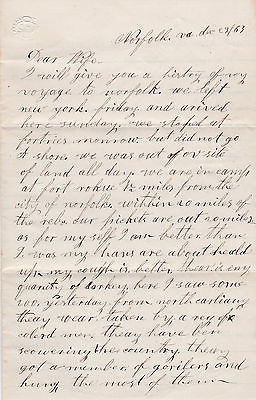 Norfolk va dec 23/63
Dear Wife
I will give you a histry of my
voyage to norfolk we left
new york friday and arived
here sunday we stoped at
fortries monrow but did not go
a shore we was out of ov site
of land all day we are in camp
at fort 2 miles from the
city of norfolk within 20 miles of
the rebs our pickets are out 10 miles
as for my self I am better than
I was my hans are about heald
up my cough is better thear is eny
quanity of darkey here I saw some
200 yesterday from north carliany
theay wear taken by a reg of
colerd men theay have ben
scowering the country theay
got a number of gorilers and
hung the most of them